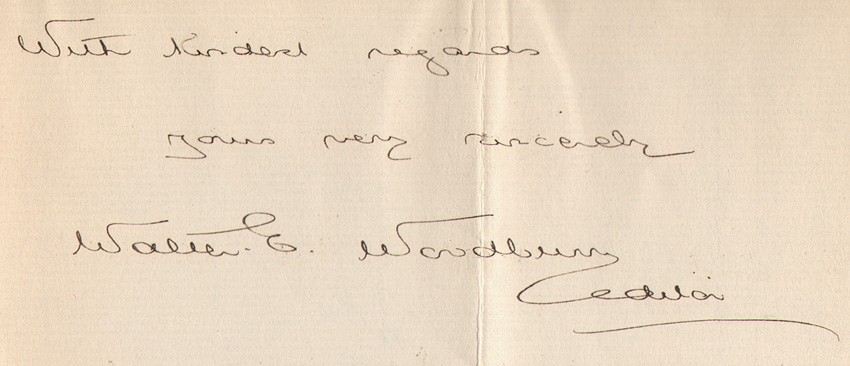 With kindest regards
yours very sincerely
Walter. E. Woodbury
Editor